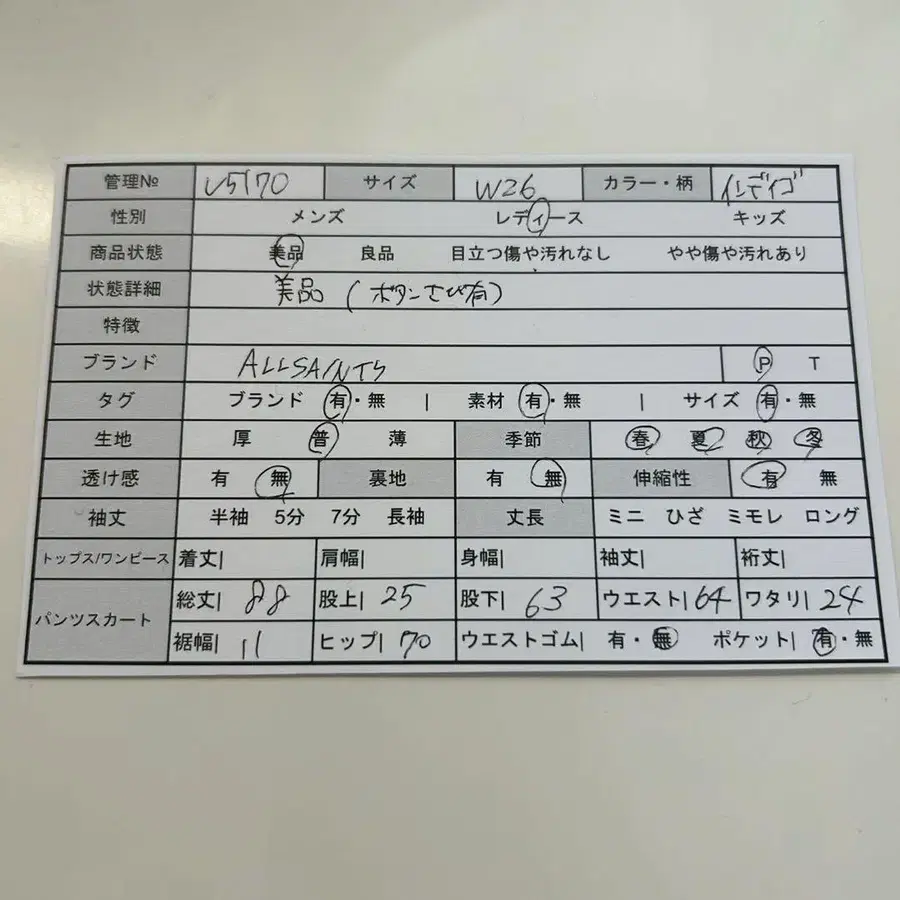 管理№ V5170 サイズ W26 カラー・柄 インディゴ
性別 メンズ レディース キッズ
商品状態 美品 良品 目立つ傷や汚れなし やや傷や汚れあり
状態詳細 美品 (ボタンさび有)
特徴
ブランド ALLSAINTS P T
タグ ブランド 有・無 | 素材 有・無 | サイズ 有・無
生地 厚 普 薄 季節 春 夏 秋 冬
透け感 有 無 裏地 有 無 伸縮性 有 無
袖丈 半袖 5分 7分 長袖 丈長 ミニ ひざ ミモレ ロング
トップス/ワンピース 着丈| 肩幅| 身幅| 袖丈| 裄丈|
パンツスカート 総丈| 88 股上| 25 股下| 63 ウエスト| 64 ワタリ| 24
裾幅| 11 ヒップ| 70 ウエストゴム| 有・無 ポケット| 有・無